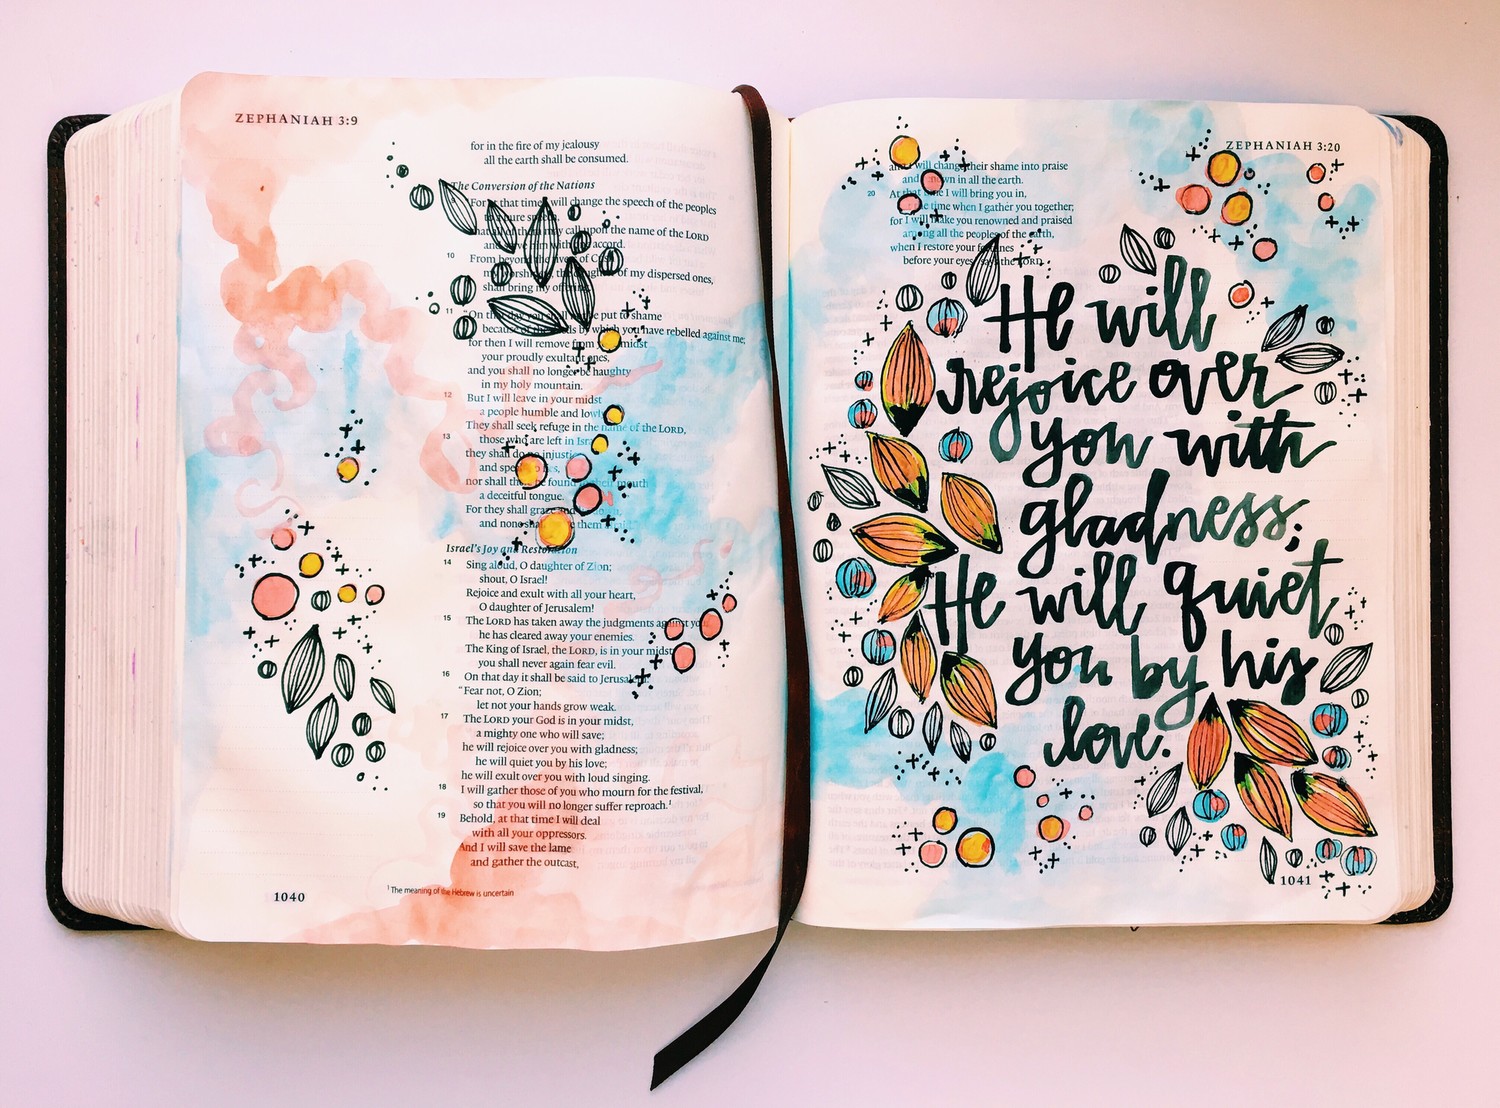 ZEPHANIAH 3:9
for in the fire of my jealousy
all the earth shall be consumed.
The Conversion of the Nations
9 “For at that time I will change the speech of the peoples
to a pure speech,
that all of them may call upon the name of the LORD
and serve him with one accord.
10 From beyond the rivers of Cush
my worshipers, the daughter of my dispersed ones,
shall bring my offering.
11 “On that day you shall not be put to shame
because of the deeds by which you have rebelled against me;
for then I will remove from your midst
your proudly exultant ones,
and you shall no longer be haughty
in my holy mountain.
12 But I will leave in your midst
a people humble and lowly.
They shall seek refuge in the name of the LORD,
13 those who are left in Israel;
they shall do no injustice
and speak no lies,
nor shall there be found in their mouth
a deceitful tongue.
For they shall graze and lie down,
and none shall make them afraid.”
Israel's Joy and Restoration
14 Sing aloud, O daughter of Zion;
shout, O Israel!
Rejoice and exult with all your heart,
O daughter of Jerusalem!
15 The LORD has taken away the judgments against you;
he has cleared away your enemies.
The King of Israel, the LORD, is in your midst;
you shall never again fear evil.
16 On that day it shall be said to Jerusalem:
“Fear not, O Zion;
let not your hands grow weak.
17 The LORD your God is in your midst,
a mighty one who will save;
he will rejoice over you with gladness;
he will quiet you by his love;
he will exult over you with loud singing.
18 I will gather those of you who mourn for the festival,
so that you will no longer suffer reproach.1
19 Behold, at that time I will deal
with all your oppressors.
And I will save the lame
and gather the outcast,
1 The meaning of the Hebrew is uncertain
1040
ZEPHANIAH 3:20
and I will change their shame into praise
and renown in all the earth.
20 At that time I will bring you in,
at the time when I gather you together;
for I will make you renowned and praised
among all the peoples of the earth,
when I restore your fortunes
before your eyes,” says the LORD.
He will
rejoice over
you with
gladness;
He will quiet
you by his
love.
1041